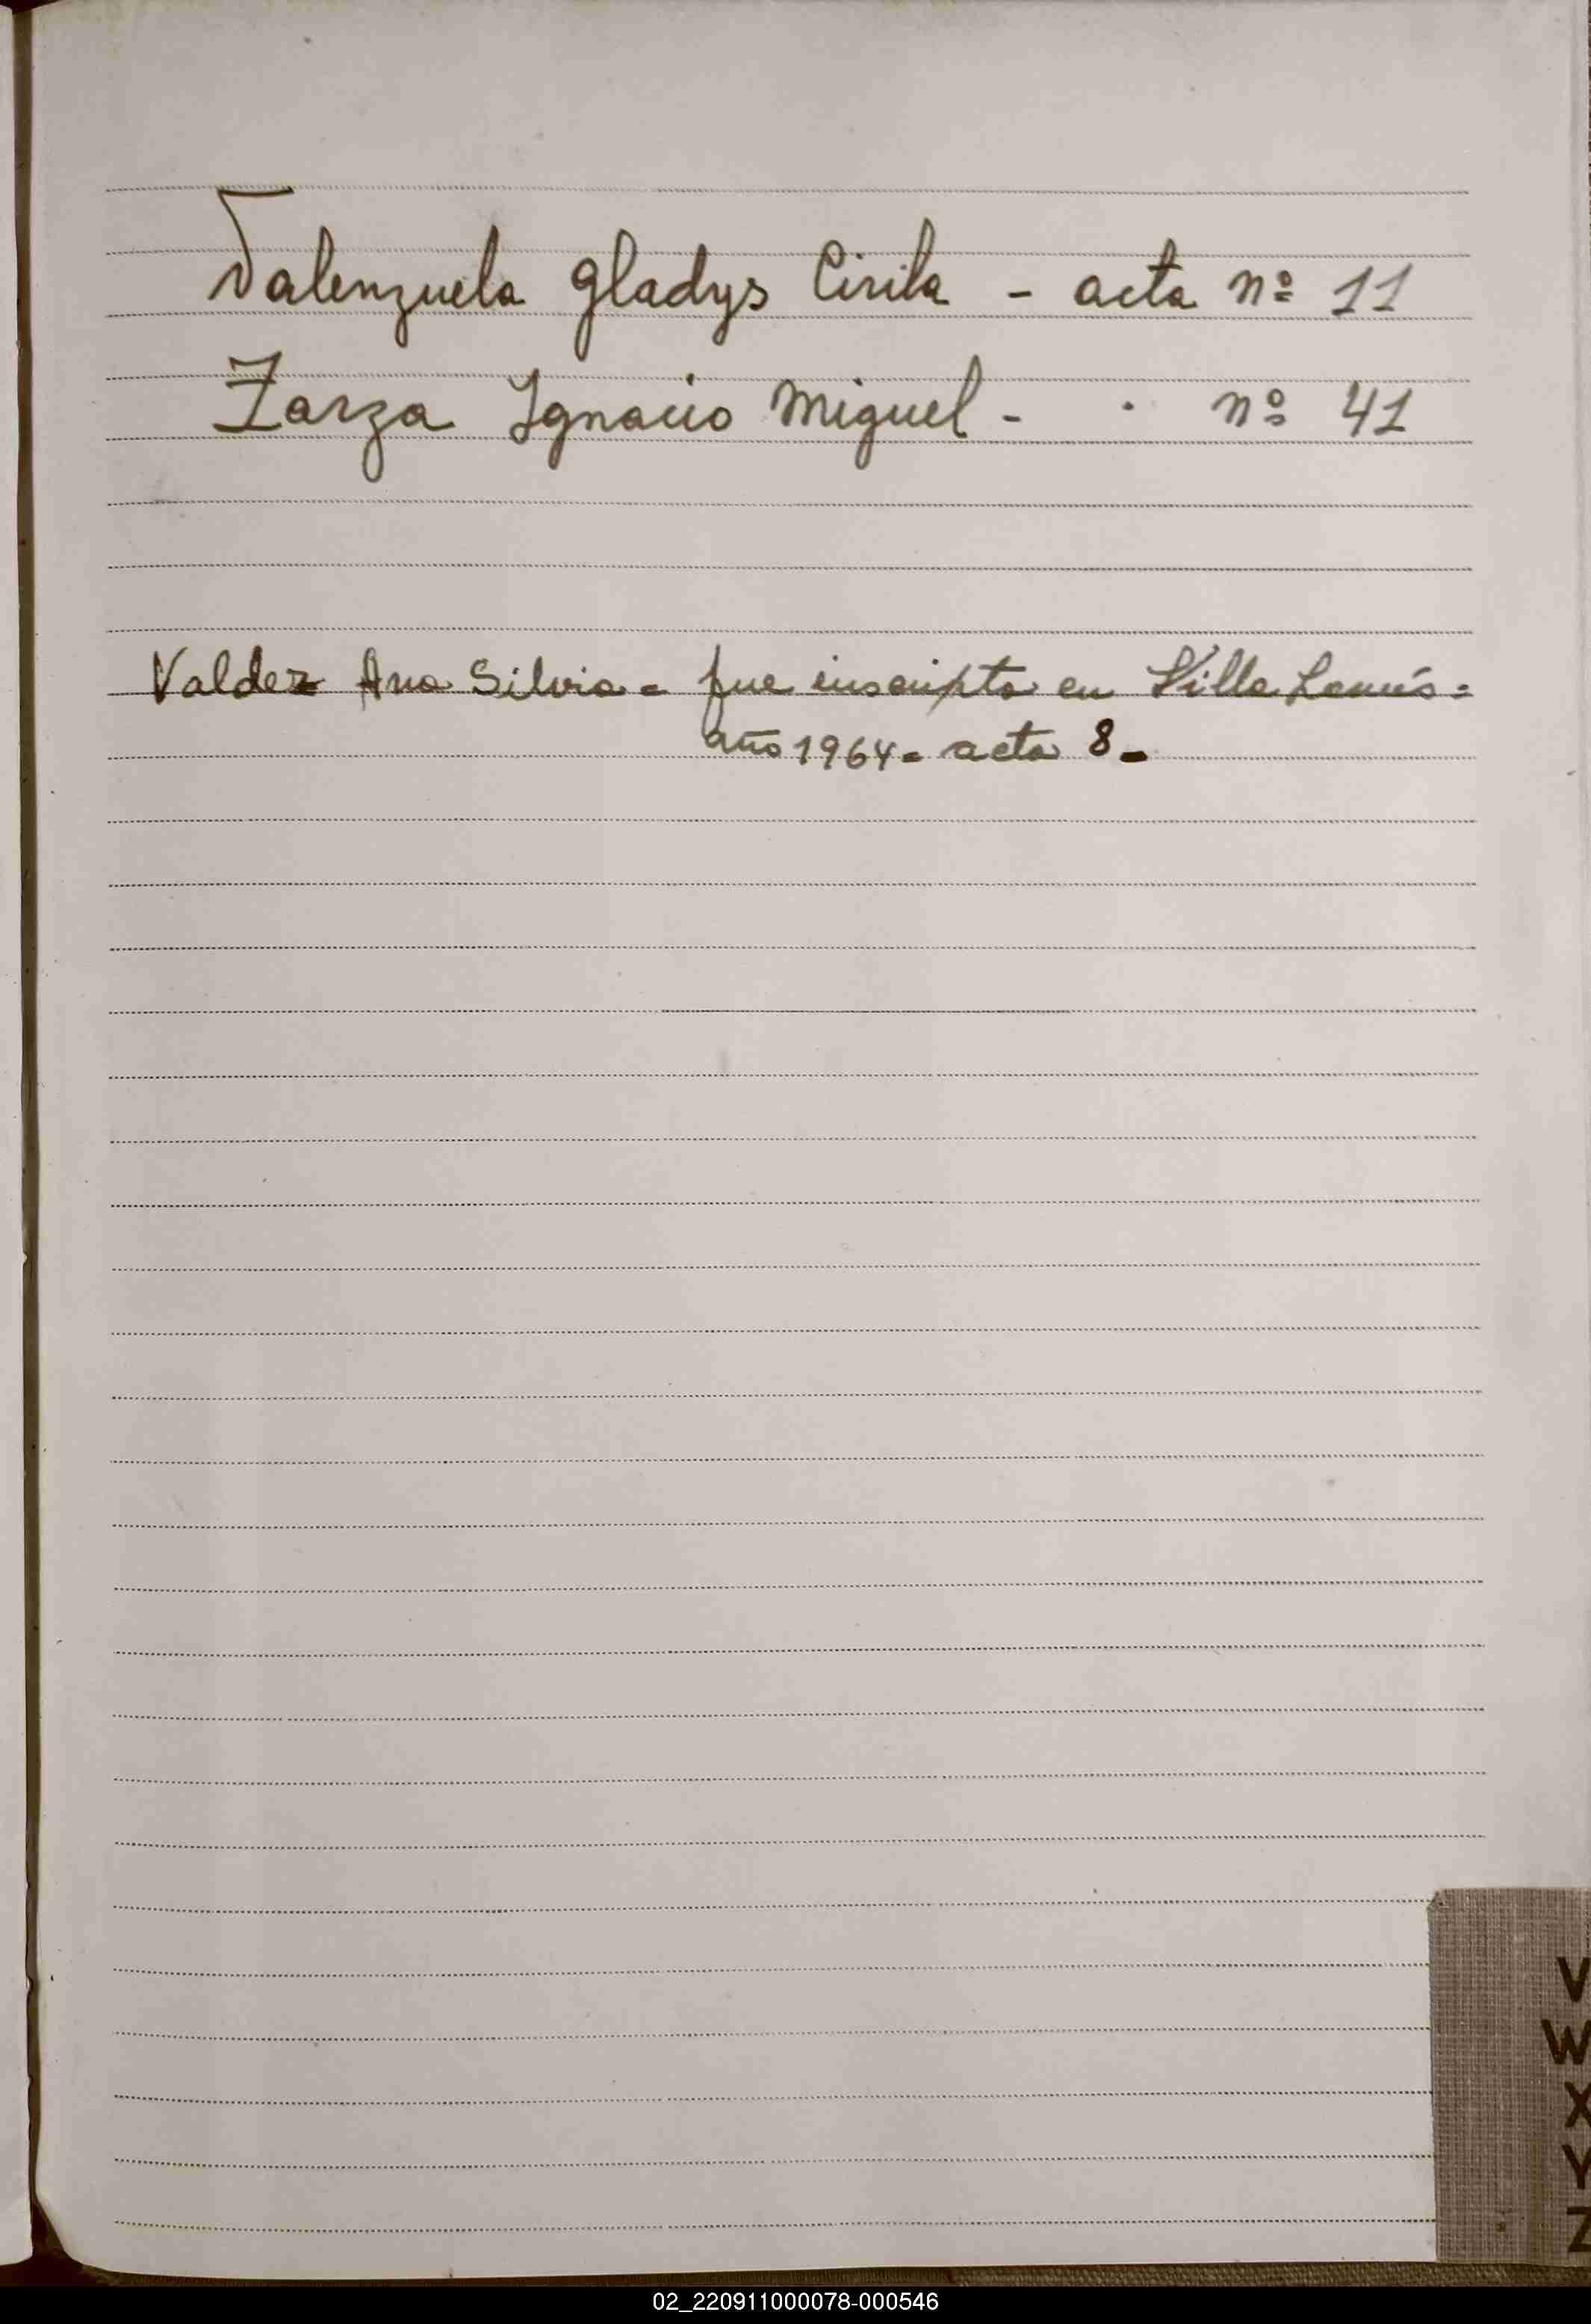 Valenzuela Gladys Cirila - acta nº 11
Zarza Ignacio Miguel - " nº 41
Valdez Ana Silvia = fue inscripta en Villa Lanús =
año 1964 = acta 8 -
V
W
X
Y
Z
02_220911000078-000546